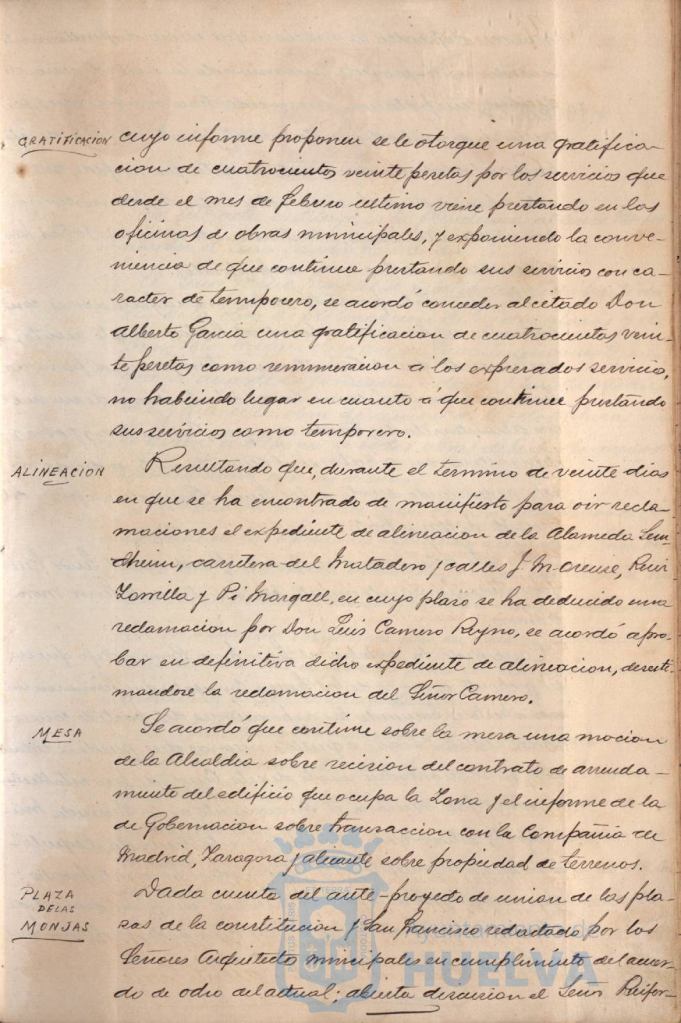 GRATIFICACION
cuyo informe proponen se le otorque una gratifica-
cion de cuatrocientos veinte pesetas por los servicios que
desde el mes de febrero ultimo viene prestando en las
oficinas de obras municipales, y exponiendo la conve-
niencia de que continue prestando sus servicio con ca-
racter de temporero, se acordó conceder al citado Don
Alberto Garcia una gratificacion de cuatrocientas vein-
te pesetas como remuneracion á los expresados servicio,
no habiendo lugar en cuanto á que continue prestando
sus servicios como temporero.
ALINEACION
Resultando que, durante el termino de veinte dias
en que se ha encontrado de manifiesto para oir recla-
maciones el expediente de alineacion de la Alameda Sun
dheim, carretera del Matadero y calles J. M. Orense, Ruiz
Zorrilla y Pi Margall, en cuyo plazo se ha deducido una
reclamacion por Don Luis Camero Reyno, se acordó apro-
bar en definitiva dicho expediente de alineacion, desesti-
mandose la reclamacion del Señor Camero.
MESA
Se acordó que continue sobre la mesa una mocion
de la Alcaldia sobre recision del contrato de arrenda-
miento del edificio que ocupa la Zona y el informe de la
de Gobernacion sobre transaccion con la Compañia de
Madrid, Zaragoza y Alicante sobre propiedad de terrenos.
PLAZA
DE LAS
MONJAS
Dada cuenta del ante-proyecto de union de las pla-
zas de la constitucion y San Francisco redactado por los
Señores Arquitecto municipales en cumplimiento del acuer-
do de ocho del actual; abierta discusion el Señor
Ayuntamiento de
HUELVA